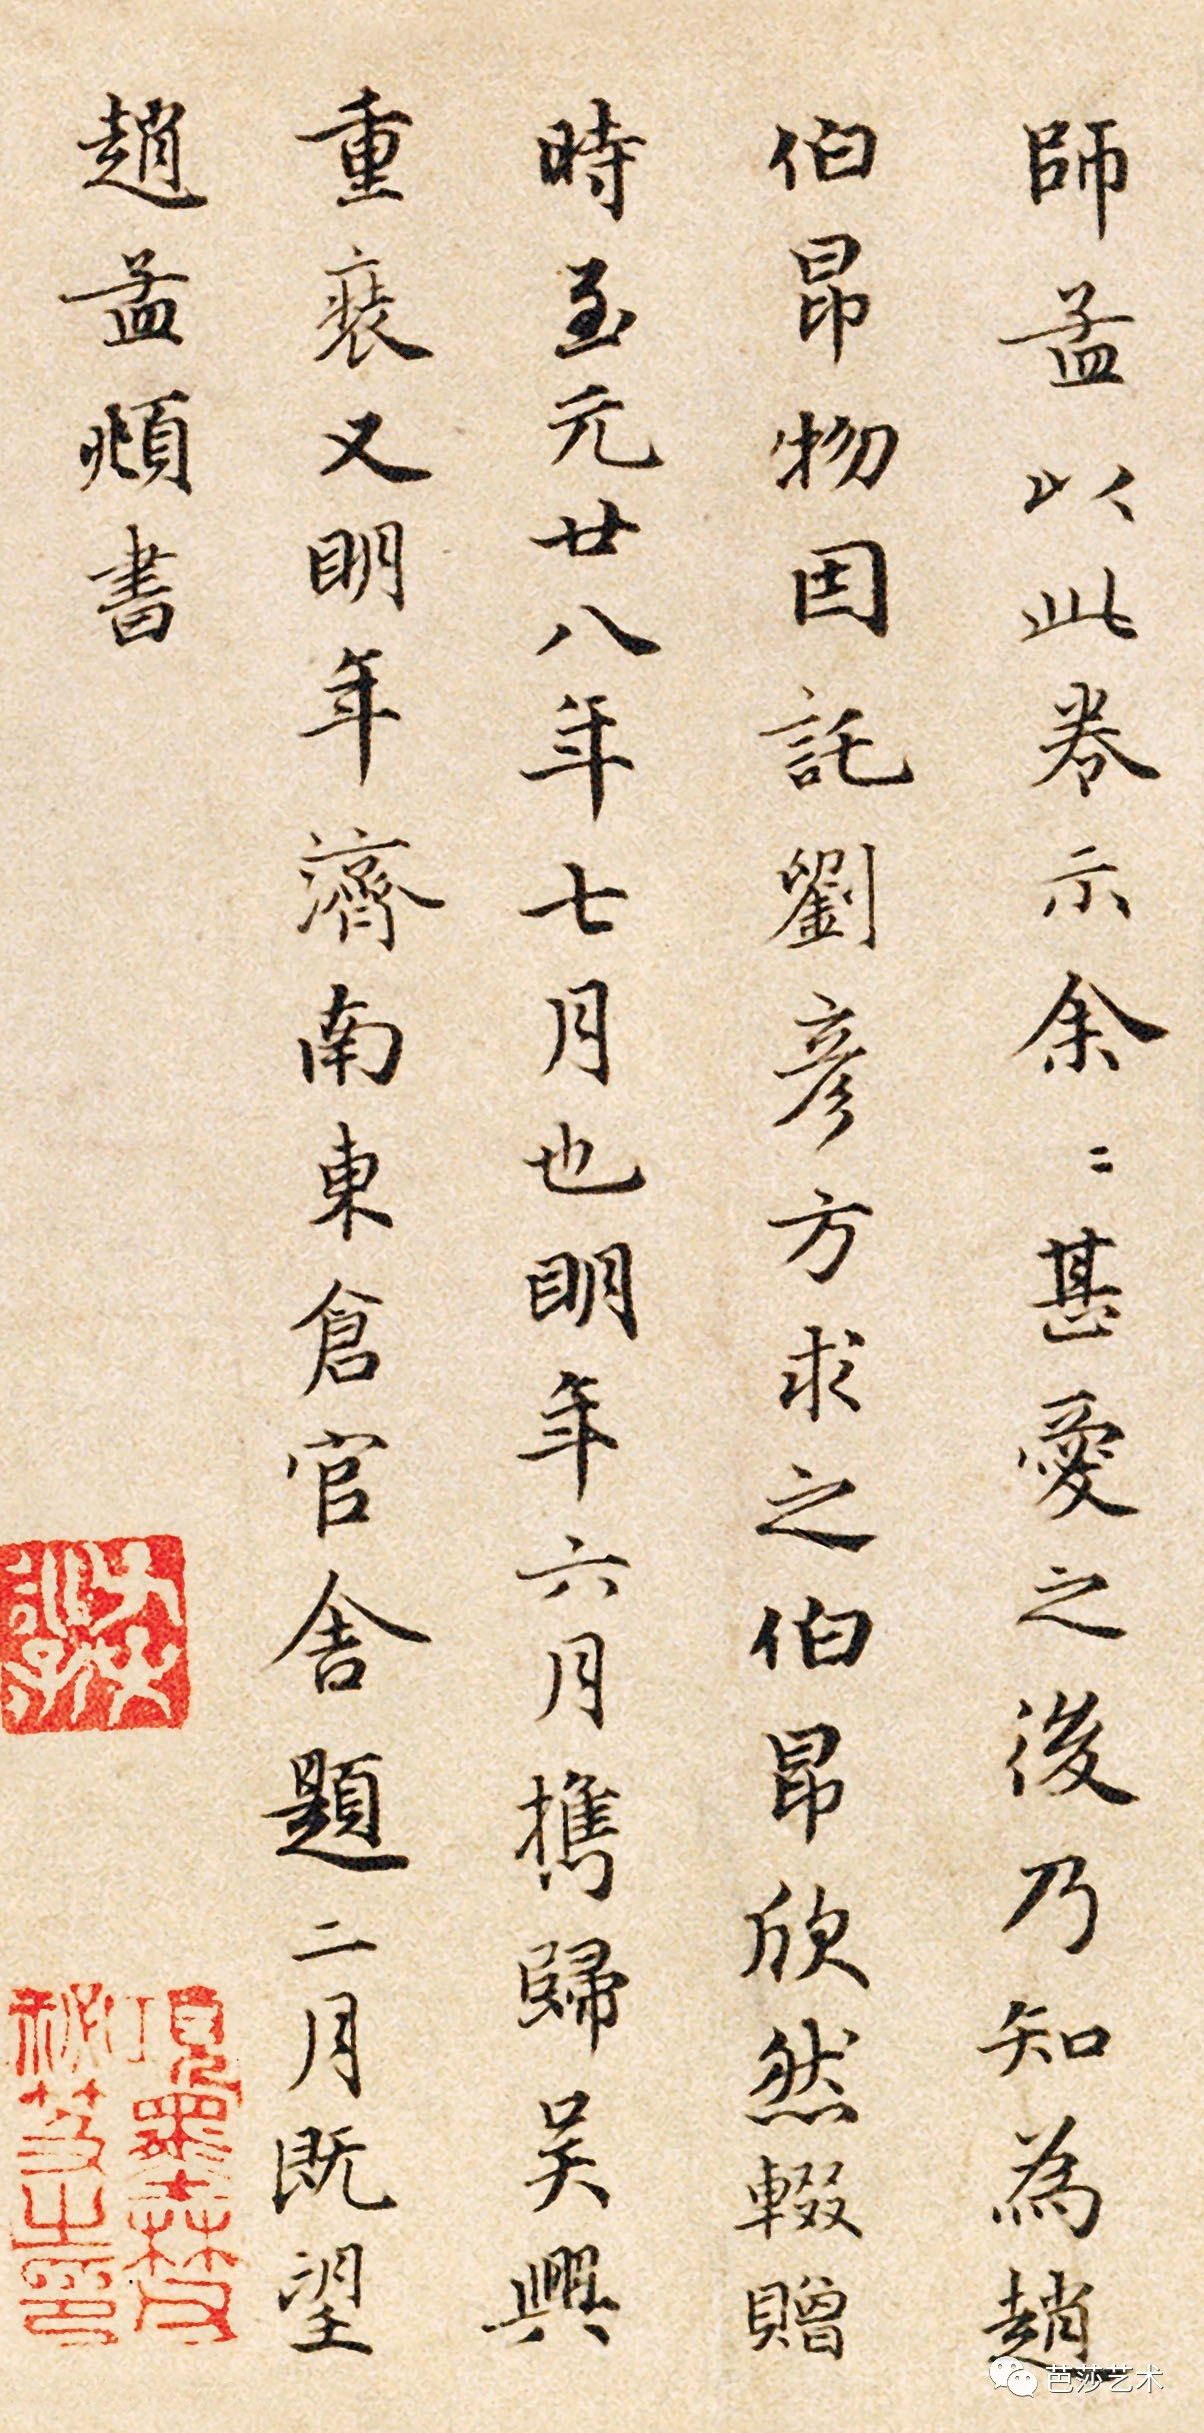 師孟以此卷示余〻甚愛之後乃知為趙
伯昂物因託劉彦方求之伯昂欣然輟贈
時至元廿八年七月也明年六月攜歸吴興
重裝又明年濟南東倉官舍題二月既望
趙孟頫書
項墨林父
祕笈之印
芭莎艺术